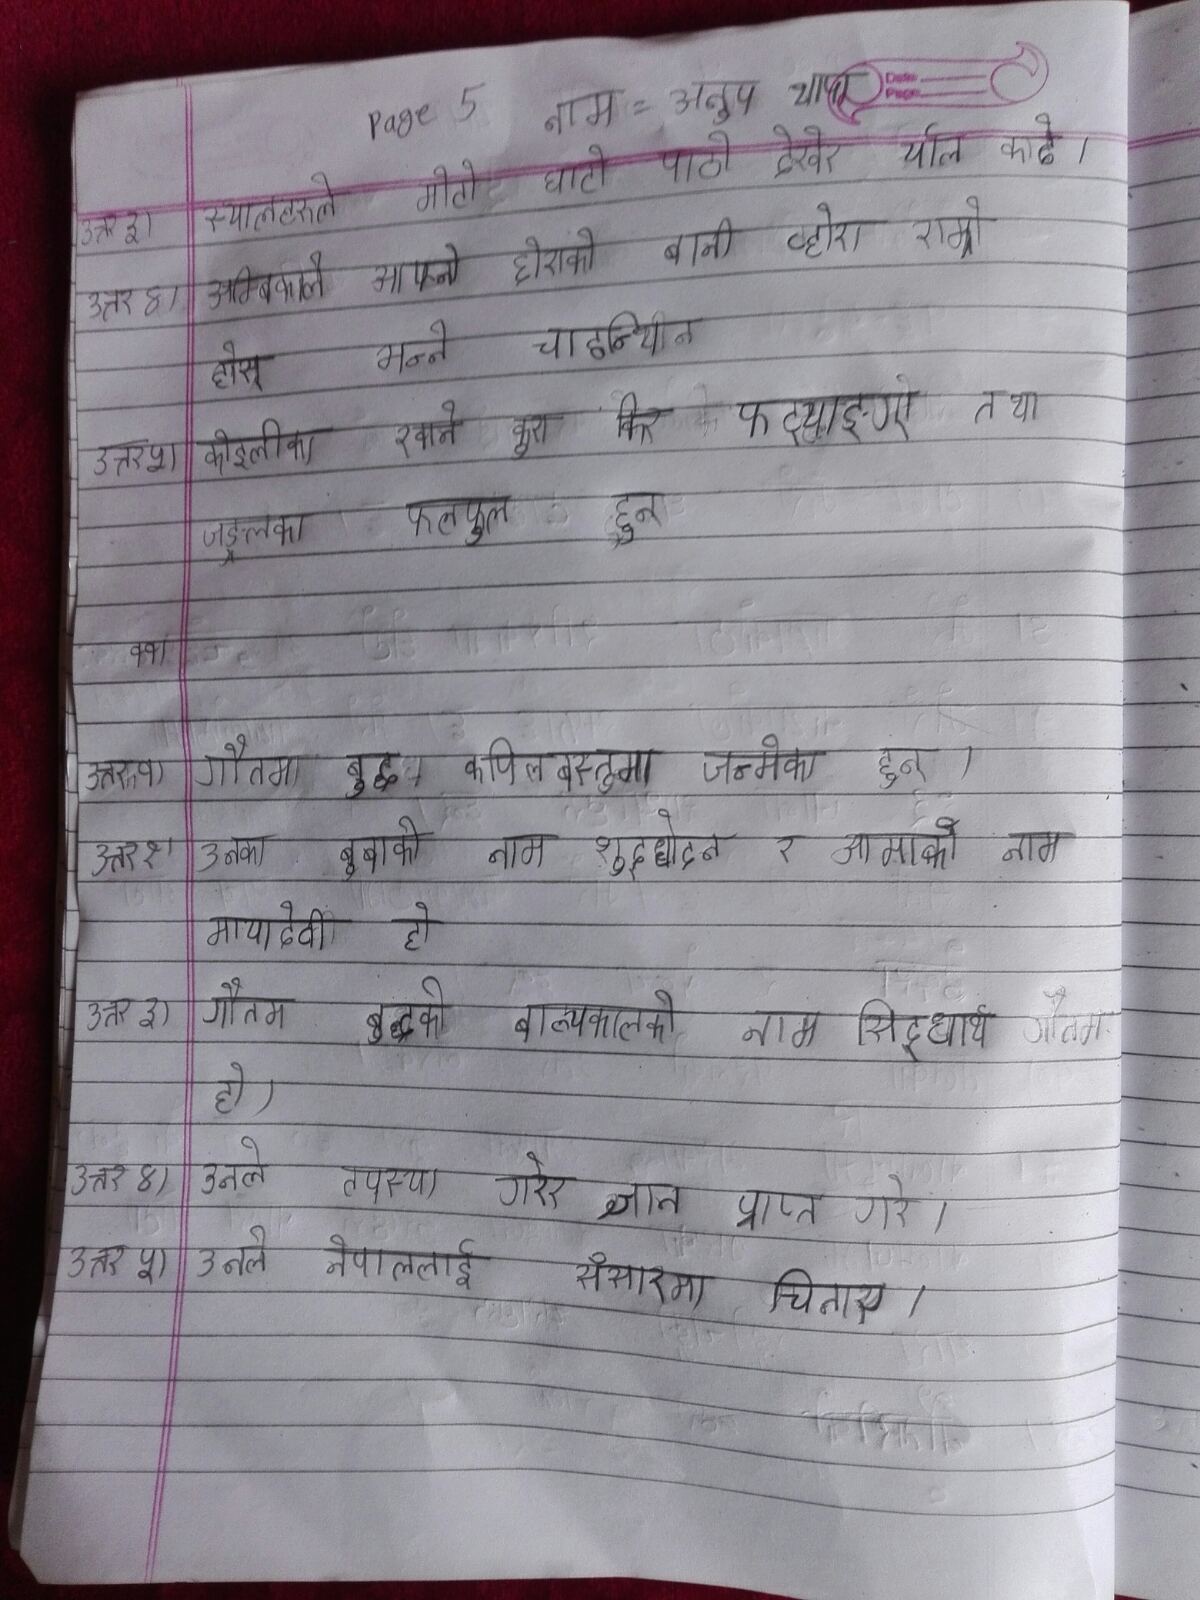 Page 5 नाम = अनुप थापा
Date:
Page:
उत्तर ३) स्यालहरुले मोटो घाटो पाठो देखेर र्याल काढे ।
उत्तर ४) अम्बिकाले आफ्नो होराको बानी व्होरा राम्रो
होस् भन्ने चाहन्थिीन
उत्तर ५) कोइलीका खाने कुरा किरा फट्याङ्ग्रा तथा
जङ्गलका फलफुल हुन्
११)
उत्तर १) गौतमा बुद्ध कपिलबस्तुमा जन्मेका हुन् ।
उत्तर २) उनका बुबाको नाम शुद्धोदन र आमाको नाम
मायादेवी हो
उत्तर ३) गौतम बुद्धको बाल्यकालको नाम सिद्धार्थ गौतम
हो ।
उत्तर ४) उनले तपस्या गरेर ज्ञान प्राप्त गरे ।
उत्तर ५) उनले नेपाललाई सँसारमा चिनाए ।